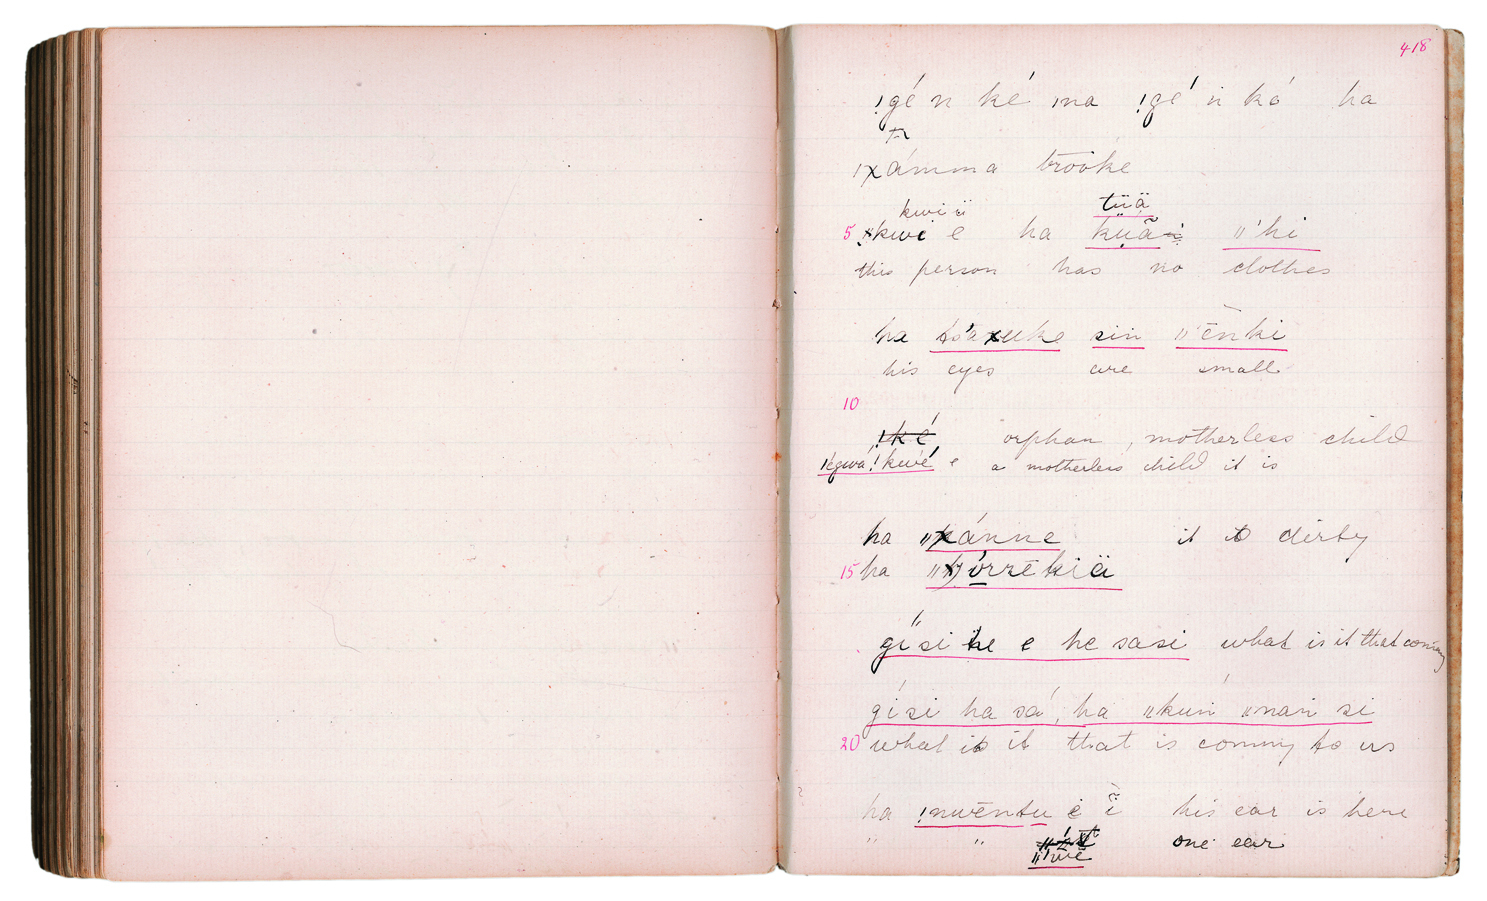 418
!gé n ké ına !gé ń kó ha
ǀxámma trooke
kwi ï tüä
5 kwi e ha küä ǁ'hi
this person has no clothes
ha tsʼaxuke sin ǁ'ēnki
his eyes are small
10
!ké orphan, motherless child
ǀégwá!kwé e a motherless child it is
ha ǁxánne it is dirty
15 ha órrēkiä
gísi he e he sasi what is it that coming
gísi ha sá, ha ǁkuń ǁnań si
20 what is it that is coming to us
ha !nwēntu é ĭ his ear is here
" " ǁ'wē one ear